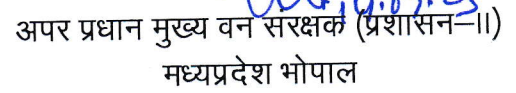 अपर प्रधान मुख्य वन संरक्षक (प्रशासन–II)
मध्यप्रदेश भोपाल